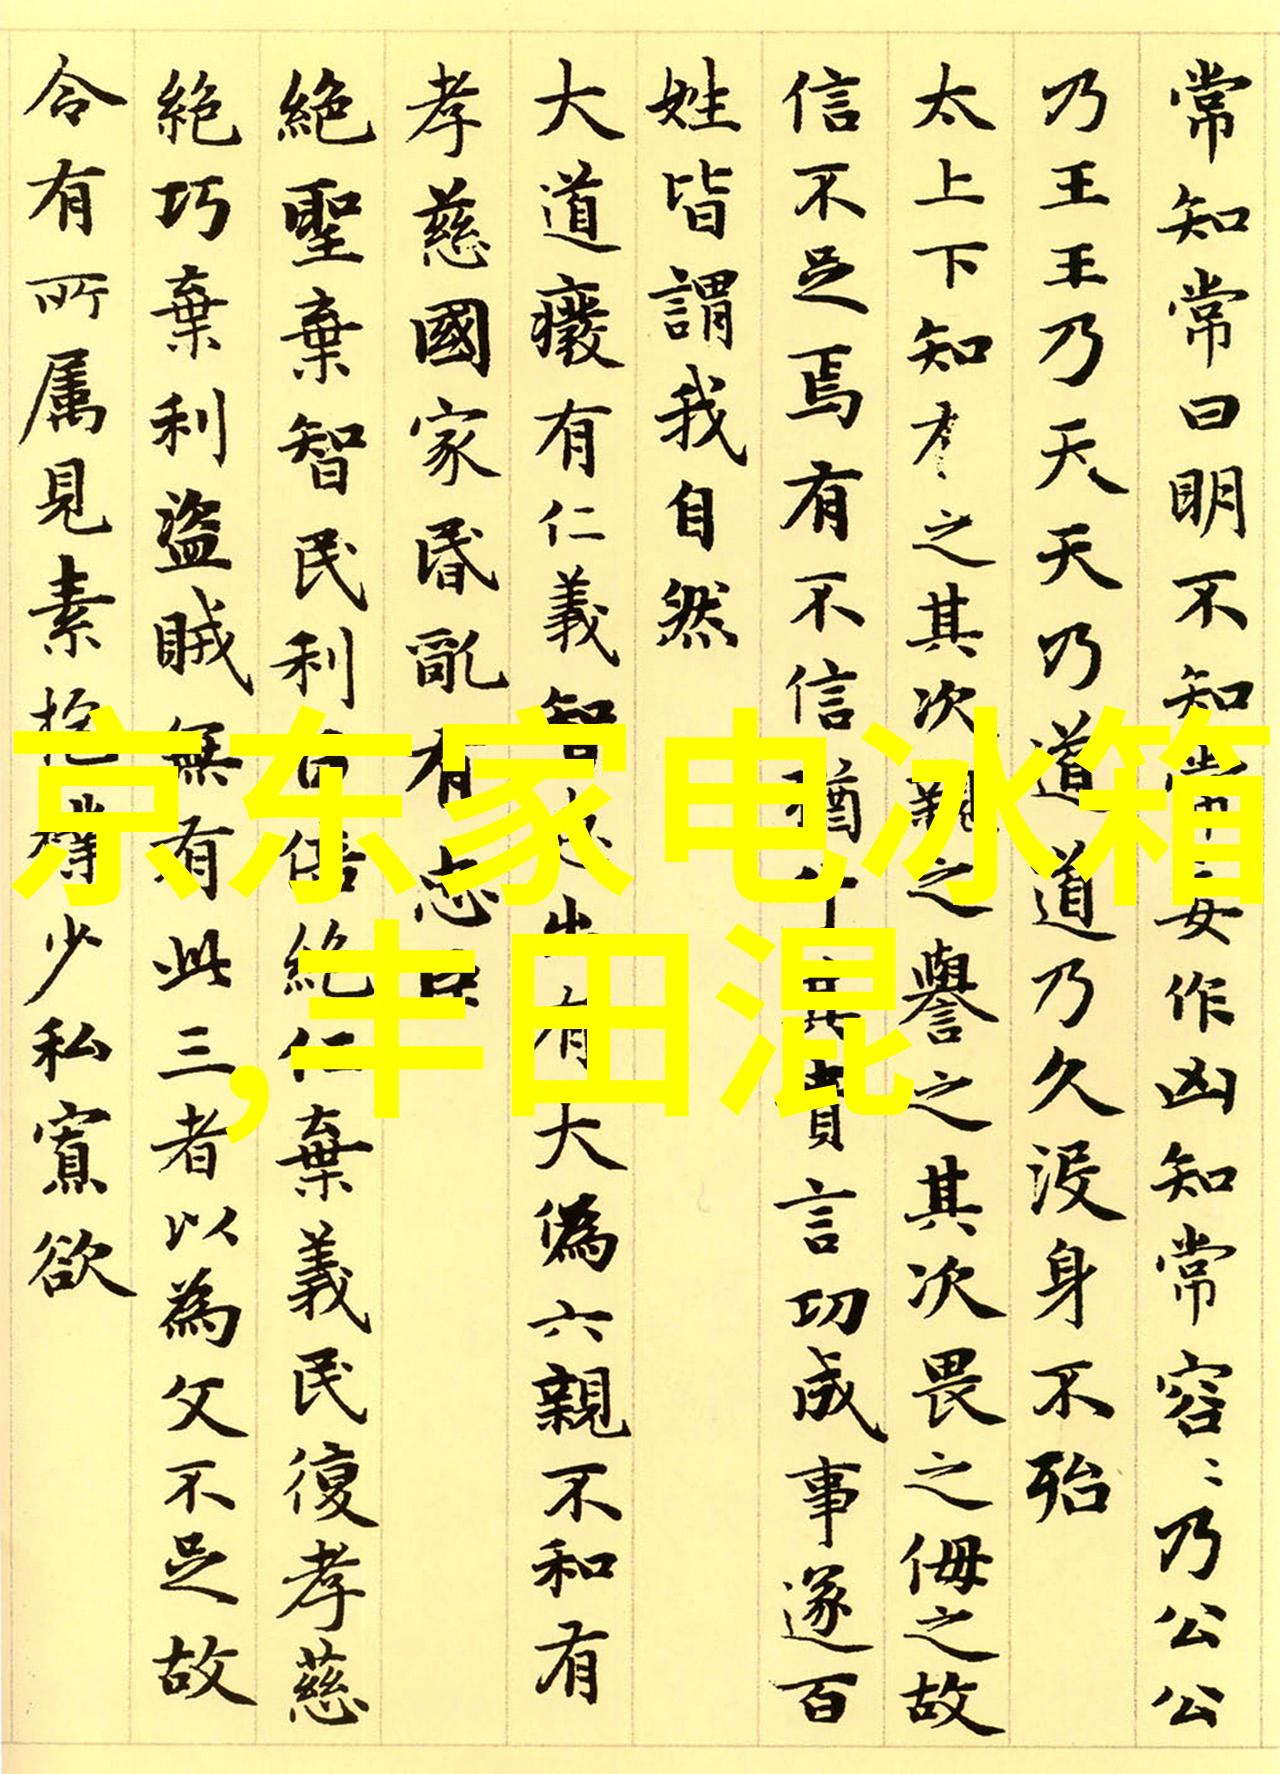 常知常曰明不知知常妄作凶知常容〻乃公公
乃王王乃天天乃道道乃久没身不殆
太上下知有之其次親之譽之其次畏之侮之故
信不足焉有不信猶其貴言功成事遂百
姓皆謂我自然
大道癈有仁義智出有大偽六親不和有
孝慈國家昏亂有忠臣
絶聖棄智民利百倍絶仁棄義民復孝慈
絶巧棄利盗賊無有此三者以為文不足故
令有所属見素抱樸少私寡欲
京东家电冰箱
,丰田混